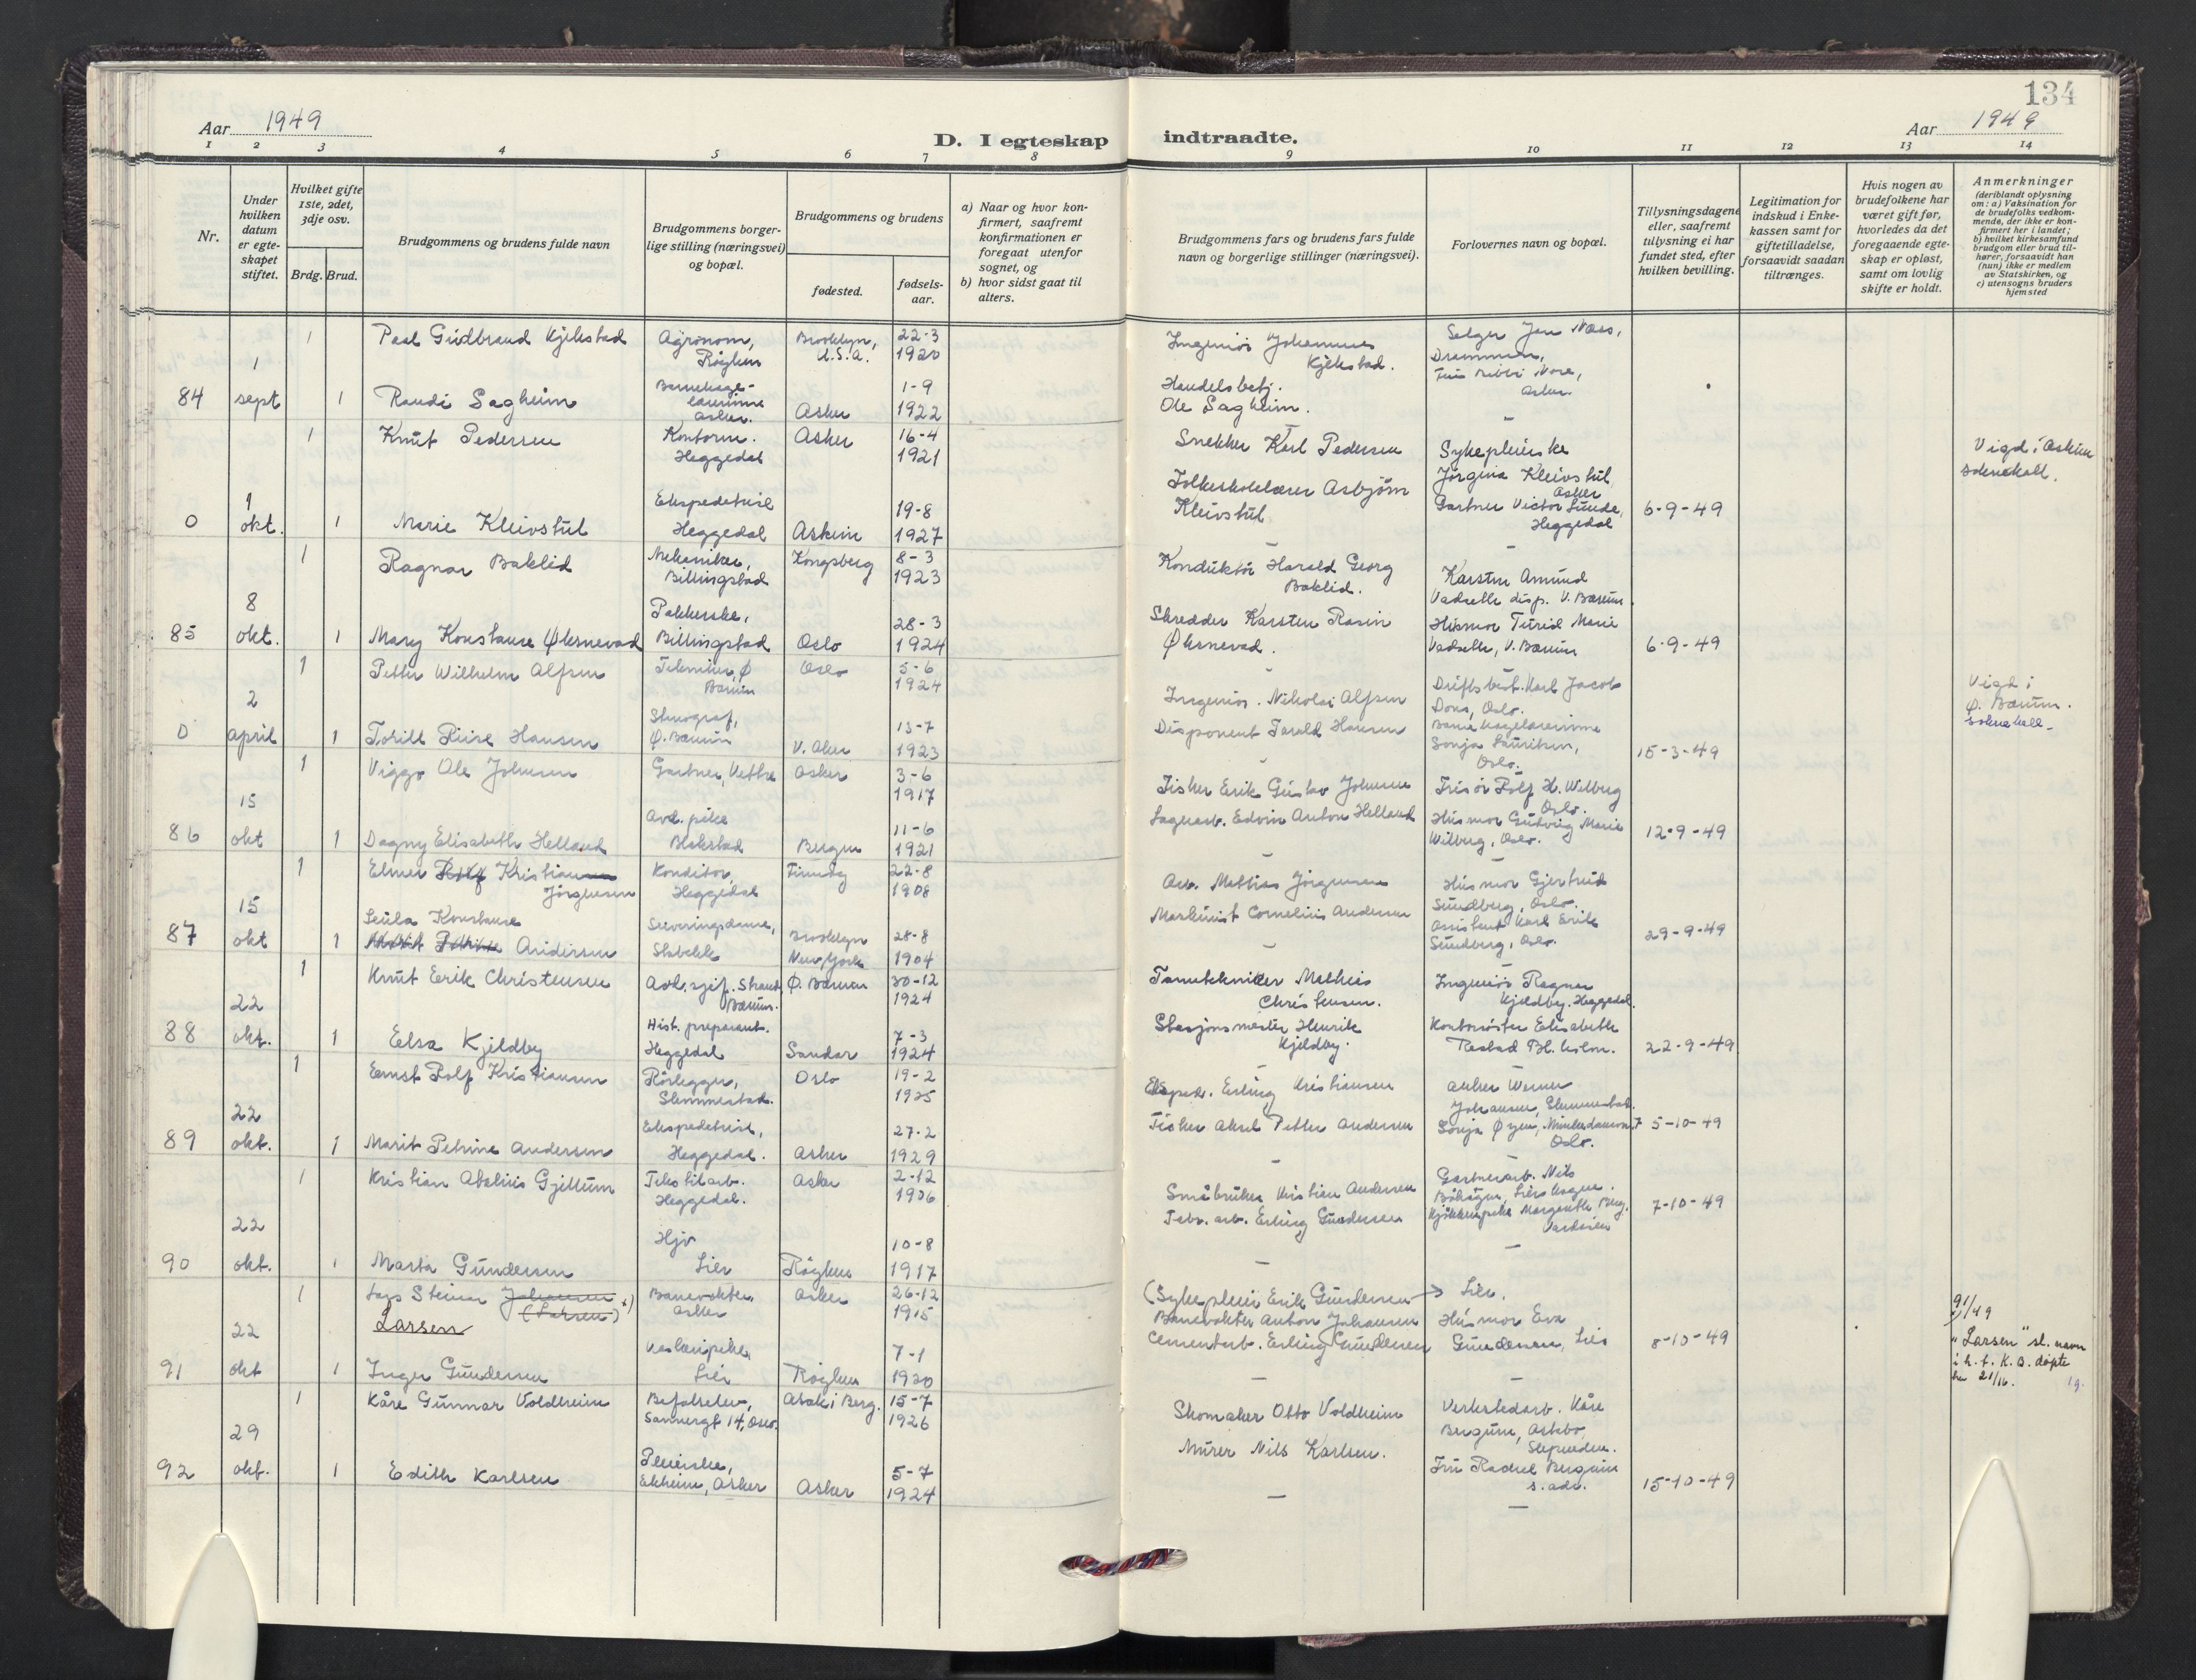 134
Aar 1949
D. I egteskap indtraadte.
Aar 1949
1 2 3 4 5 6 7 8 9 10 11 12 13 14
Nr.
Under hvilken datum er egte-skapet stiftet.
Hvilket gifte 1ste, 2det, 3dje osv.
Brdg. Brud.
Brudgommens og brudens fulde navn
Brudgommens borger-
lige stilling (næringsvei)
og bopæl.
Brudgommens og brudens
fødested.
fødsels-
aar.
a) Naar og hvor kon-
firmert, saafremt
konfirmationen er
foregaat utenfor
sognet, og
b) hvor sidst gaat til
alters.
Brudgommens fars og brudens fars fulde
navn og borgerlige stillinger (næringsvei).
Forlovernes navn og bopæl.
Tillysningsdagene
eller, saafremt
tillysning ei har
fundet sted, efter
hvilken bevilling.
Legitimation for
indskud i Enke-
kassen samt for
giftetilladelse,
forsaavidt saadan
tiltrænges.
Hvis nogen av
brudefolkene har
været gift før,
hvorledes da det
foregaaende egte-
skap er opløst,
samt om lovlig
skifte er holdt.
Anmerkninger
(deriblandt oplysning
om: a) Vaksination for
de brudefolks vedkom-
mende, der ikke er kon-
firmert her i landet;
b) hvilket kirkesamfund
brudgom eller brud til-
hører, forsaavidt han
(hun) ikke er medlem
av Statskirken, og
c) utensogns bruders
hjemsted
1 Paal Gudbrand Kjekstad Agronom, Røyken Brooklyn, U.S.A. 22-3 1920 Ingeniør Johannes Kjekstad. Selger Jan Næss, Drammen,
84 1 sept 1 Randi Sagheim Barnehage-lærerinne Asker. Asker 1-9 1922 Handelsbetj. Ole Sagheim. Asker.
1 Knut Pedersen Kontorm. Heggedal Asker 16-4 1921 Snekker Karl Pedersen Sykepleierske Jörgina Kleivstul, Asker Vigd i Askim sokne kall.
0 1 okt. 1 Marie Kleivstul Ekspeditrise Heggedal Askim 19-8 1927 Folkeskolelærer Asbjörn Kleivstul Gartner Victor Lunde, Heggedal 6-9-49
1 Ragnar Baklid Mekaniker, Billingstad Kongsberg 8-3 1923 Konduktör Harald Georg Baklid. Karsten Amund Vadseth disp. V. Bærum.
85 8 okt. 1 Mary Konstanse Øksnevad Pakkerske, Billingstad Oslo 28-3 1924 Skredder Karsten Rasin Øksnevad. Husmor Turid Marie Vadseth, V. Bærum 6-9-49
1 Petter Wilhelm Alfsen Tekniker, Ø Bærum Oslo 5-6 1924 Ingeniør. Nikolai Alfsen Driftsbest. Karl Jacob Dons, Oslo. Vigd i Ø. Bærum. sokne kall
0 2 april 1 Torill Riise Hansen Stenograf, Ø. Bærum V. Aker 13-7 1923 Disponent Harald Hansen Barnehagelærerinne Sonja Lauritzen, Oslo. 15-3-49
1 Viggo Ole Johnsen Gartner, Vettre Asker 3-6 1917 Fisker Erik Gustav Johnsen Frisör Rolf H. Wilberg Oslo.
86 15 okt 1 Dagny Elisabeth Helland Avd. pike Blakstad Bergen 11-6 1921 Lagerarb. Edvin Anton Helland Husmor Gudvig Marie Wilberg, Oslo. 12-9-49
1 Elmer Rolf Kristiansen Jörgensen Konditor, Heggedal 22-8 1908 Arb. Mathias Jörgensen Husmor Gjertrud Sundberg, Oslo.
87 15 okt 1 Leula Konstanse Marit Petrine Andersen Serveringsdame, Stabekk Brooklyn New York 28-8 1904 Maskinist Cornelius Andersen Assistent Karl Erik Sundberg, Oslo. 29-9-49
1 Knut Erik Christensen Avd. sjef. Strand Bærum. Ø. Bærum 30-12 1924 Tanntekniker Mathias Christensen. Ingeniör Ragnar Kjeldby. Heggedal.
88 22 okt. 1 Elsa Kjeldby Hist. preparant. Heggedal Sandar 7-3 1924 Stasjonsmester Henrik Kjeldby. Kontorsöster Elisabeth 22-9-49
1 Ernst Rolf Kristiansen Rörlegger, Slemmestad. Oslo 19-2 1925 Ekspd. Erling Kristiansen Anker Werner Johansen, Slemmestad.
89 22 okt. 1 Marit Petrine Andersen Ekspeditrise, Heggedal. Asker 27-2 1929 Fisker Aksel Petter Andersen Sonja Øyen, Oslo. 5-10-49
1 Kristian Abelius Gjellum Tekstilarb. Heggedal. Asker 2-12 1906 Småbruker Kristian Andersen Gartnerarb. Nils
90 22 okt. 1 Marta Gundersen Hjv Lier Röyken 10-8 1917 Fabr. arb. Erling Gundersen Kjökkenpike Margarethe Berg. 7-10-49
1 Lars Steinar Johansen (Larsen) x) Larsen Banevokter, Asker Asker 26-12 1915 (Sykepleier Erik Gundersen → Lier. Banevokter Anton Johansen
91 22 okt 1 Inger Gundersen Lier Röyken 7-1 1920 Cementarb. Erling Gundersen Husmor Eva Gundersen, Lier 8-10-49
91/49 x) "Larsen" sl. navn i h. t. K. B. döpte
1 Kåre Gunnar Voldheim Befalselev, Sannergt 14, Oslo. Asak i Berg. 15-7 1926 Skomaker Otto Voldheim Verkstedarb. Kåre Bergum, Slependen.
92 29 okt. 1 Edith Karlsen Pleierske, Ekheim, Asker Asker 5-7 1924 Murer Nils Karlsen. Fru Rachel Bergum s. adr. 15-10-49